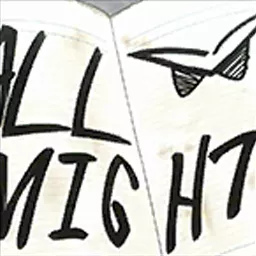 ALL
MIGHT